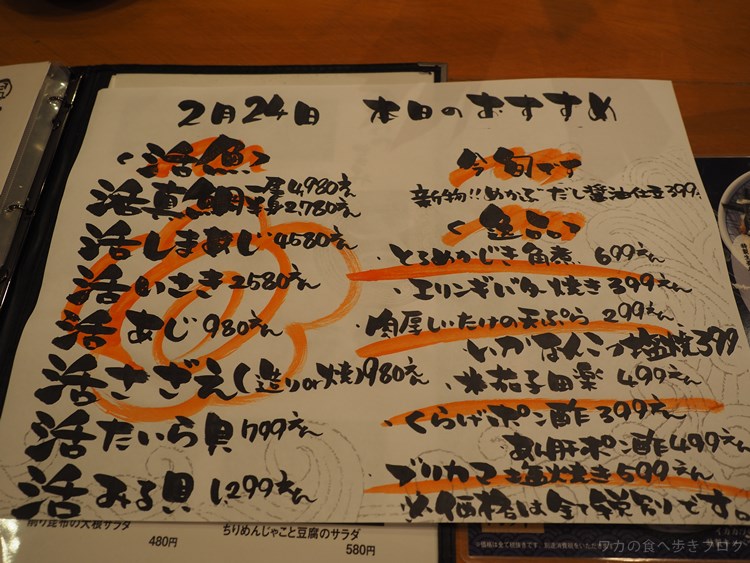 2月24日 本日のおすすめ
<活魚>
活真鯛 一尾4,980えん
半身2,780えん
活しまあじ 4580えん
活いさき 2580えん
活あじ 980えん
活さざえ(造りor焼)980えん
活たいら貝 799えん
活みる貝 1,299えん
今旬です
新物!!めかぶだし醤油仕立 399
<逸品>
・とろめかじき角煮 699えん
・エリンギバター焼き 399えん
・肉厚しいたけの天ぷら 299えん
・いかなんこつ塩焼 399
・米茄子田楽 499えん
・くらげポン酢 399えん
・あん肝ポン酢 499えん
・ブリカマ塩焼き 599えん
※価格は全て税別です。
削り昆布の大根サラダ
480円
ちりめんじゃこと豆腐のサラダ
580円
※価格は税抜きです。
ワカの食べ歩きブログ